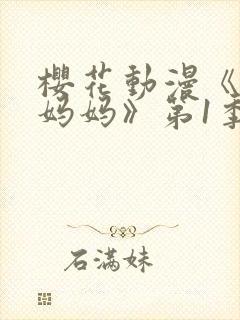 櫻花動漫《
妈妈》第1季
石满妹